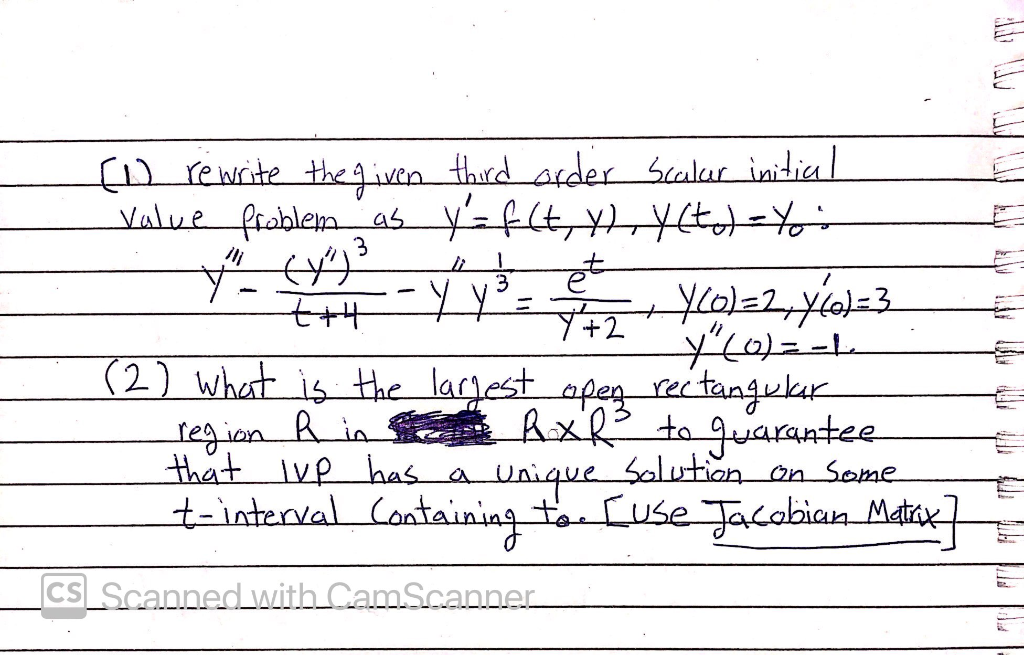 (1) rewrite the given third order scalar initial
value problem as y' = f(t, y), y(t₀) = y₀ :
y''' - (y'')³/(t+4) - y'' y^(1/3) = e^t/(y'+2) , y(0)=2, y'(0)=3
y''(0) = -1.
(2) what is the largest open rectangular
region R in R x R³ to guarantee
that IVP has a unique solution on some
t-interval Containing t₀. [use Jacobian Matrix]
CS Scanned with CamScanner